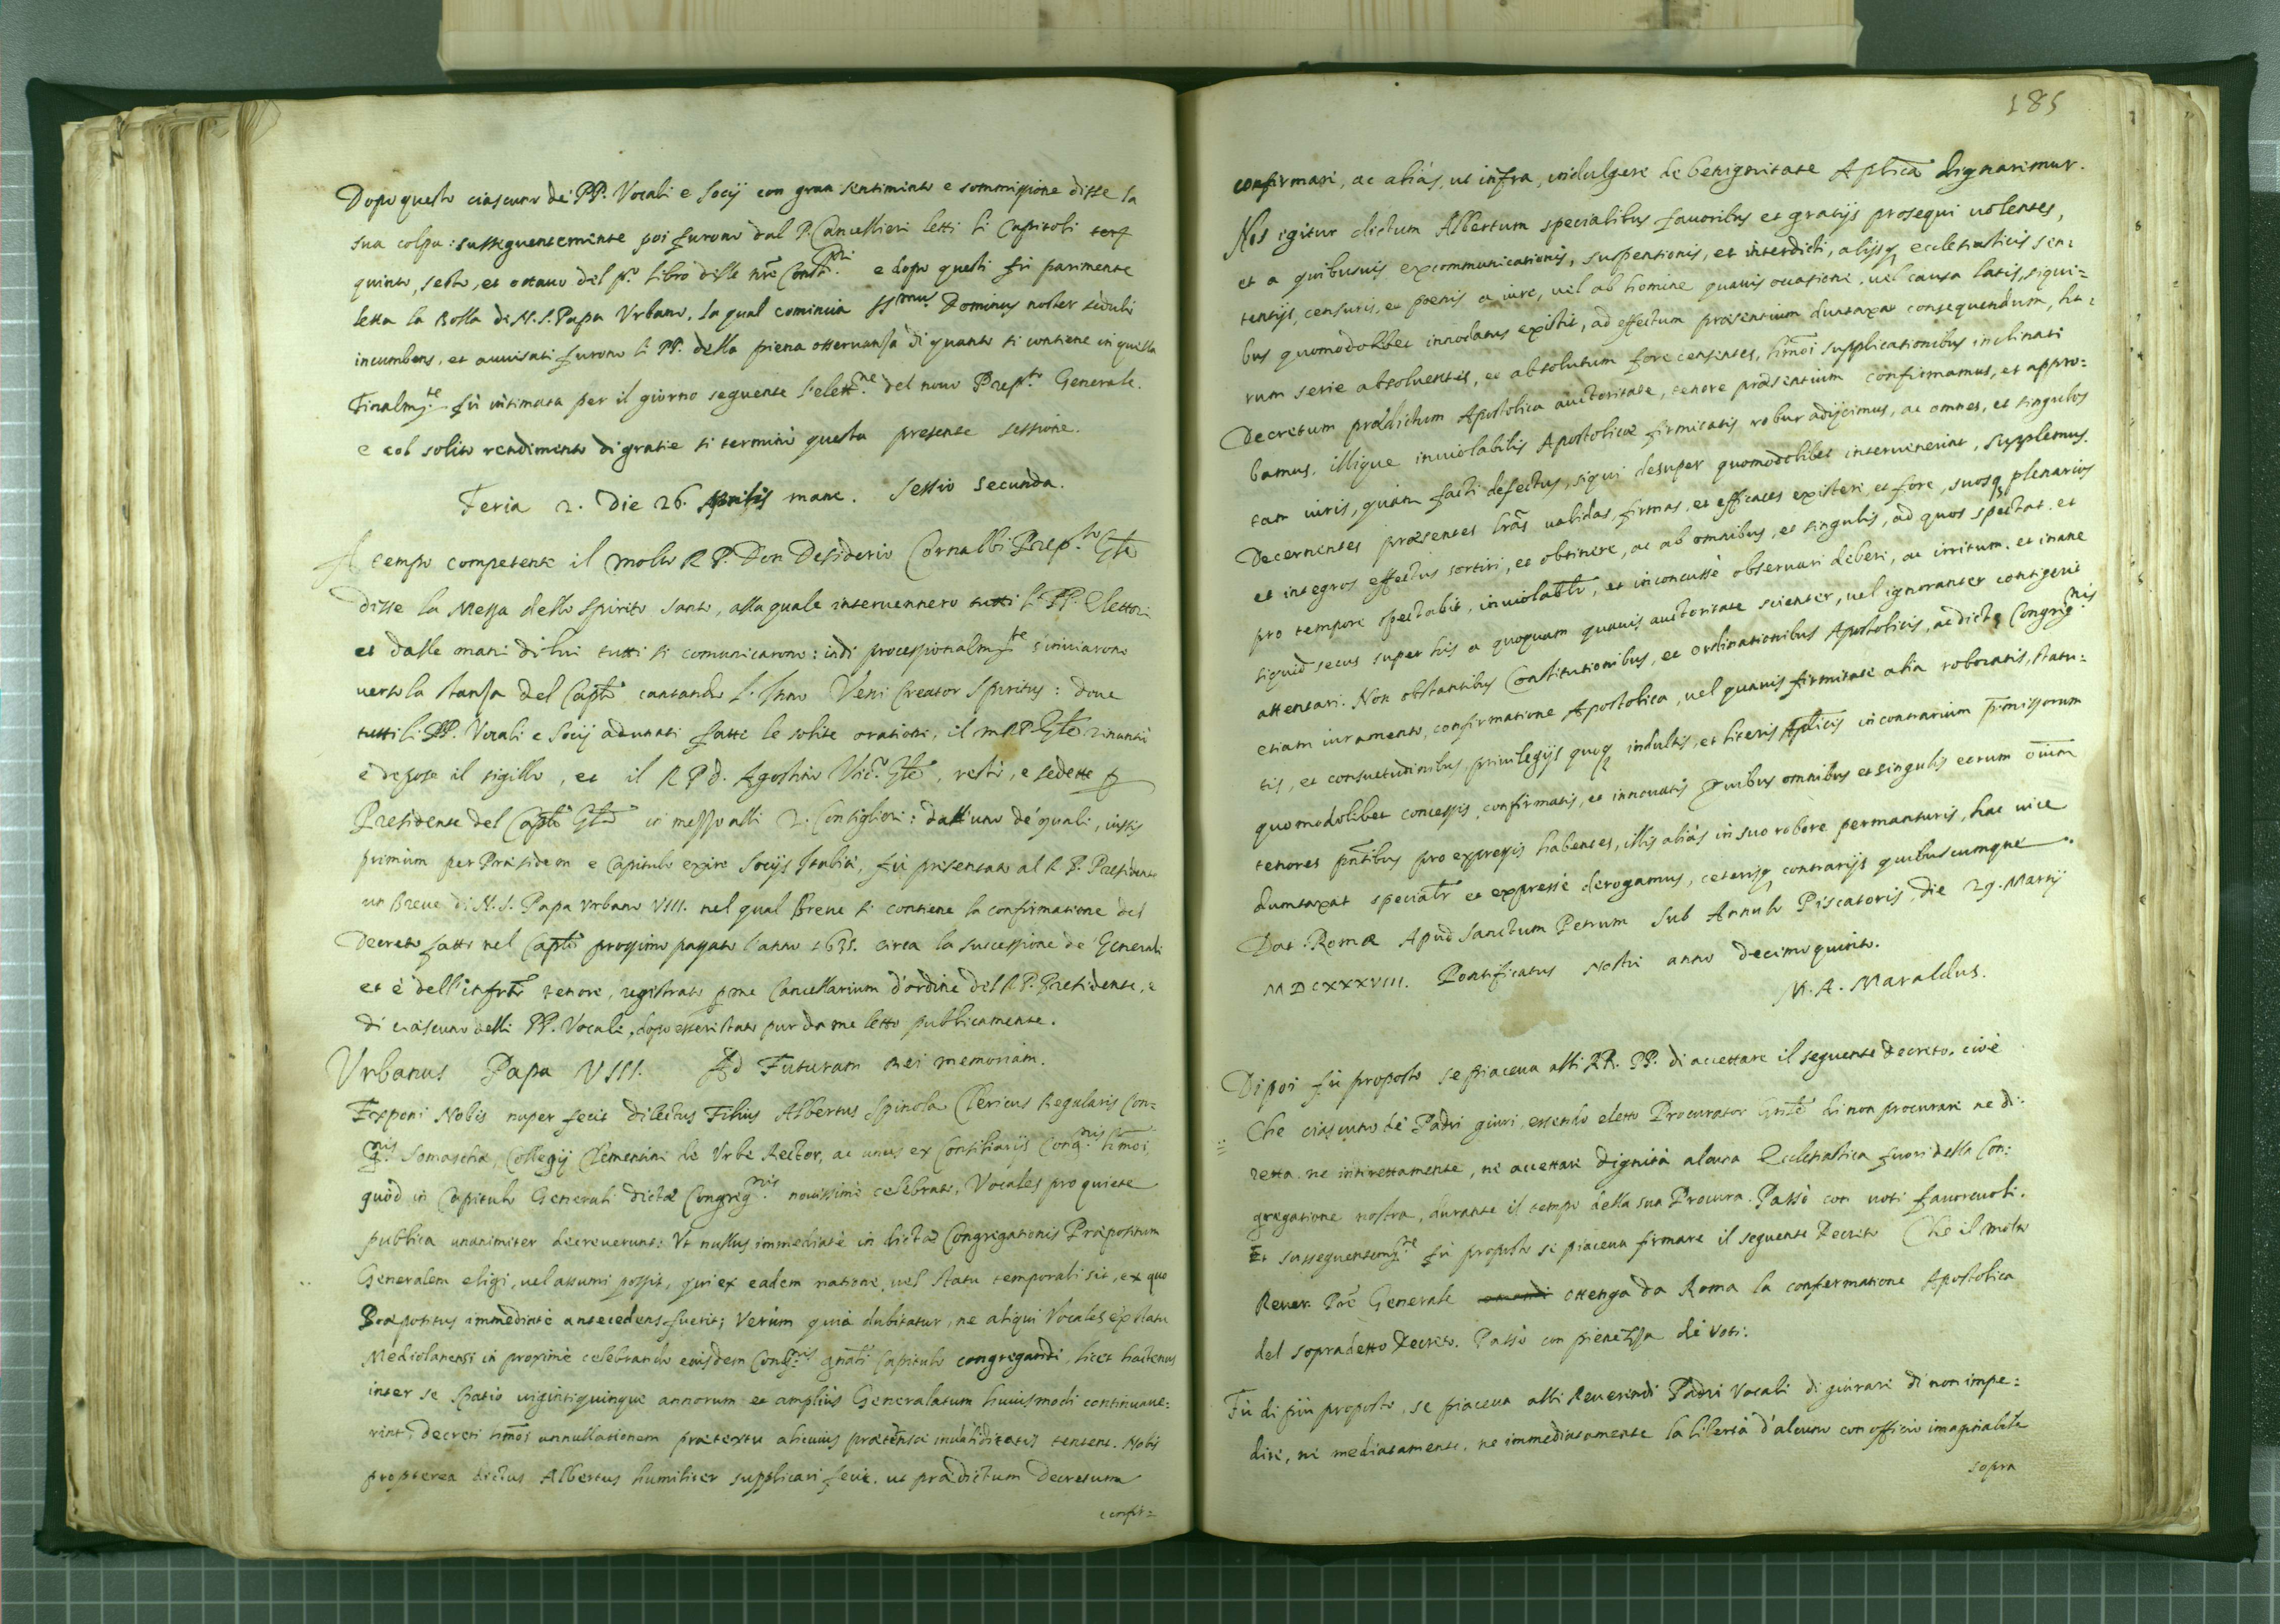 Dopo questo ciascuno de PP. Vocali e Socij con gran sentimento e sommissione disse la
sua colpa: susseguentemente poi furono dal P. Cancellieri letti li Capitoli terzo
quinto, sesto, et ottauo del p.º libro delle nr̃e e dopo questi fù parimente
letta la Bolla di N. S. Papa Vrbano, la qual comincia SS.mus Dominus noster seduli
incumbens, et auuisati furono li PP. della piena osseruanza di quanto si contiene in quella
Finalm.te fù intimata per il giorno seguente l'elett.ne del nouo Prep.to Generale.
e col solito rendimento di gratie si terminò questa presente sessione.
Feria 2. Die 26. Aprilis mane. Sessio secunda.
A tempo competente il molto R. P. Don Desiderio Cornalbi Prep.to Gñle
disse la Messa dello Spirito Santo, alla quale interuennero tutti li PP. Elettori
et dalle mani di lui tutti si comunicarono: indi processionalm.te s'inuiarono
uerso la stanza del Caplo cantando l'Inno Veni Creator Spiritus: doue
tutti li PP. Vocali e Socij adunati fatte le solite orationi, il m R P Gñle rinuntiò
e depose il sigillo, et il R P d. Agostino Vic.º Gñle, restò, e sedette p
Presidente del Caplo Gñle in mezzo alli 2. Consiglieri: dall'uno de quali, iussis
primum per Præsidem e Capitulo exire Socijs, fù presentato al R. P. Presidente
un Breue di N. S. Papa Vrbano VIII. nel qual Breue si contiene la confirmatione del
Decreto fatto nel Caplo prossimo passato l'anno 1635. circa la successione de Generali
et è dell'infrto tenore, registrato p me Cancellarium d'ordine del R P. Presidente, e
di ciascuno delli PP. Vocali, dopo esser stato pur da me letto pubblicamente.
Vrbanus Papa VIII. Ad Futuram Rei memoriam.
Exponi Nobis nuper fecit dilectus Filius Albertus Spinola Clericus Regularis Con=
g.nis Somaschæ, Collegij Clementini de Vrbe Rector, ac unus ex Consiliarijs Cong.nis hmõi
quòd in Capitulo Generali dictæ Congreg.nis nouissimè celebrato, Vocales pro quiete
publica unanimiter decreuerunt: Vt nullus immediatè in dictæ Congregationis Præpositum
Generalem eligi, uel assumi possit, qui ex eadem natione, uel statu temporali sit, ex quo
Præpositus immediatè antecedens fuerit; Verùm quia dubitatur, ne aliqui Vocales ex statu
Mediolanensi in proximè celebrando eiusdem Cong.nis gnãli Capitulo congregandi, licet hactenus
inter se spatio uigintiquinque annorum et ampliùs Generalatum huiusmodi continuaue=
rint, decreti hmõi annullationem prætextu alicuius prætensæ inualiditatis tentent. Nobis
propterea dictus Albertus humiliter supplicari fecit, ut prædictum Decretum
confir=
185
confirmare, ac aliàs, ut infra, indulgere de benignitate Aplica dignaremur.
Nos igitur dictum Albertum specialibus fauoribus et gratijs prosequi uolentes,
et a quibusuis excommunicationis, suspensionis, et interdicti, alijsq ecclesiasticis sen=
tentijs, censuris, et poenis a iure, uel ab homine quauis occasione, uel causa latis, siqui=
bus quomodolibet innodatus existit, ad effectum præsentium dumtaxat consequendum, ha=
rum serie absoluentes, et absolutum fore censentes, hmõi supplicationibus inclinati
Decretum prædictum Apostolica auctoritate, tenore præsentium confirmamus, et appro=
bamus, illique inuiolabilis Apostolicæ firmitatis robur adijcimus, ac omnes, et singulos
tam iuris, quàm facti defectus, siqui desuper quomodolibet interuenerint, supplemus.
Decernentes præsentes lrãs ualidas, firmas, et efficaces existere, et fore, suosq plenarios
et integros effectus sortiri, et obtinere, ac ab omnibus, et singulis, ad quos spectat, et
pro tempore spectabit, inuiolablr, et inconcussè obseruari deberi, ac irritum, et inane
siquid secus super his a quoquam quauis auctoritate scienter, uel ignoranter contigerit
attentari. Non obstantibus Constitutionibus, et ordinationibus Apostolicis, ac dictæ Congreg.nis
etiam iuramento, confirmatione Apostolica, uel quauis firmitate alia roboratis, statu=
tis, et consuetudinibus, priuilegijs quoq indultis, et literis Aplicis in contrarium p̃missorum
quomodolibet concessis, confirmatis, et innouatis Quibus omnibus et singulis eorum oĩum
tenores pntibus pro expressis habentes, illis aliàs in suo robore permansuris, hac uice
dumtaxat specialr et expressè derogamus, ceterisq contrarijs quibuscumque.
Dat. Romæ Apud Sanctum Petrum sub Annulo Piscatoris, die 29. Martij
MDCXXXVIII. Pontificatus Nostri anno decimoquinto.
M. A. Maraldus.
Di poi fù proposto se piaceua alli RR. PP. di accettare il seguente decreto. cioè
Che ciascuno de Padri giuri, essendo eletto Procurator Gñle di non procurare ne di=
retta, ne inirettamente, ne accettare dignità alcuna Ecclesiastica fuori della Con=
gregatione nostra, durante il tempo della sua Procura. Passò con uoti fauoreuoli.
Et susseguentem.te fù proposto se piaceua firmare il seguente Decreto Che il molto
Reuer. Prẽ Generale ottenga da Roma la confermatione Apostolica
del sopradetto Decreto. Passò con pienezza de Voti.
Fù di più proposto, se piaceua alli Reuerendi Padri Vocali di giurare di non impe=
dire, nè mediatamente, ne immediatamente la libertà d'alcuno con officio imaginabile
sopra